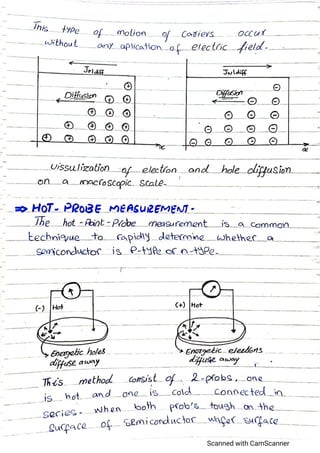 This type of motion of Cariers occur
without any aplication of electric field.
Jp|diff
Jn|diff
Diffusion
Diffusion
x
x
Vissulization of electron and hole diffusion
on a macroscopic scale-
⇒ HOT- PROBE MEASUREMENT-
The hot-Point-Probe measurement is a common
technique to rapidly determine whether a
semiconductor is P-type or n-type.
(-) Hot
(+) Hot
Energetic holes
diffuse away
Energetic electons
diffuse away
This method consist of 2-probs, one
is hot and one is cold connected in
series. when both prob's tough on the
surface of semiconductor whifer surface
Scanned with CamScanner